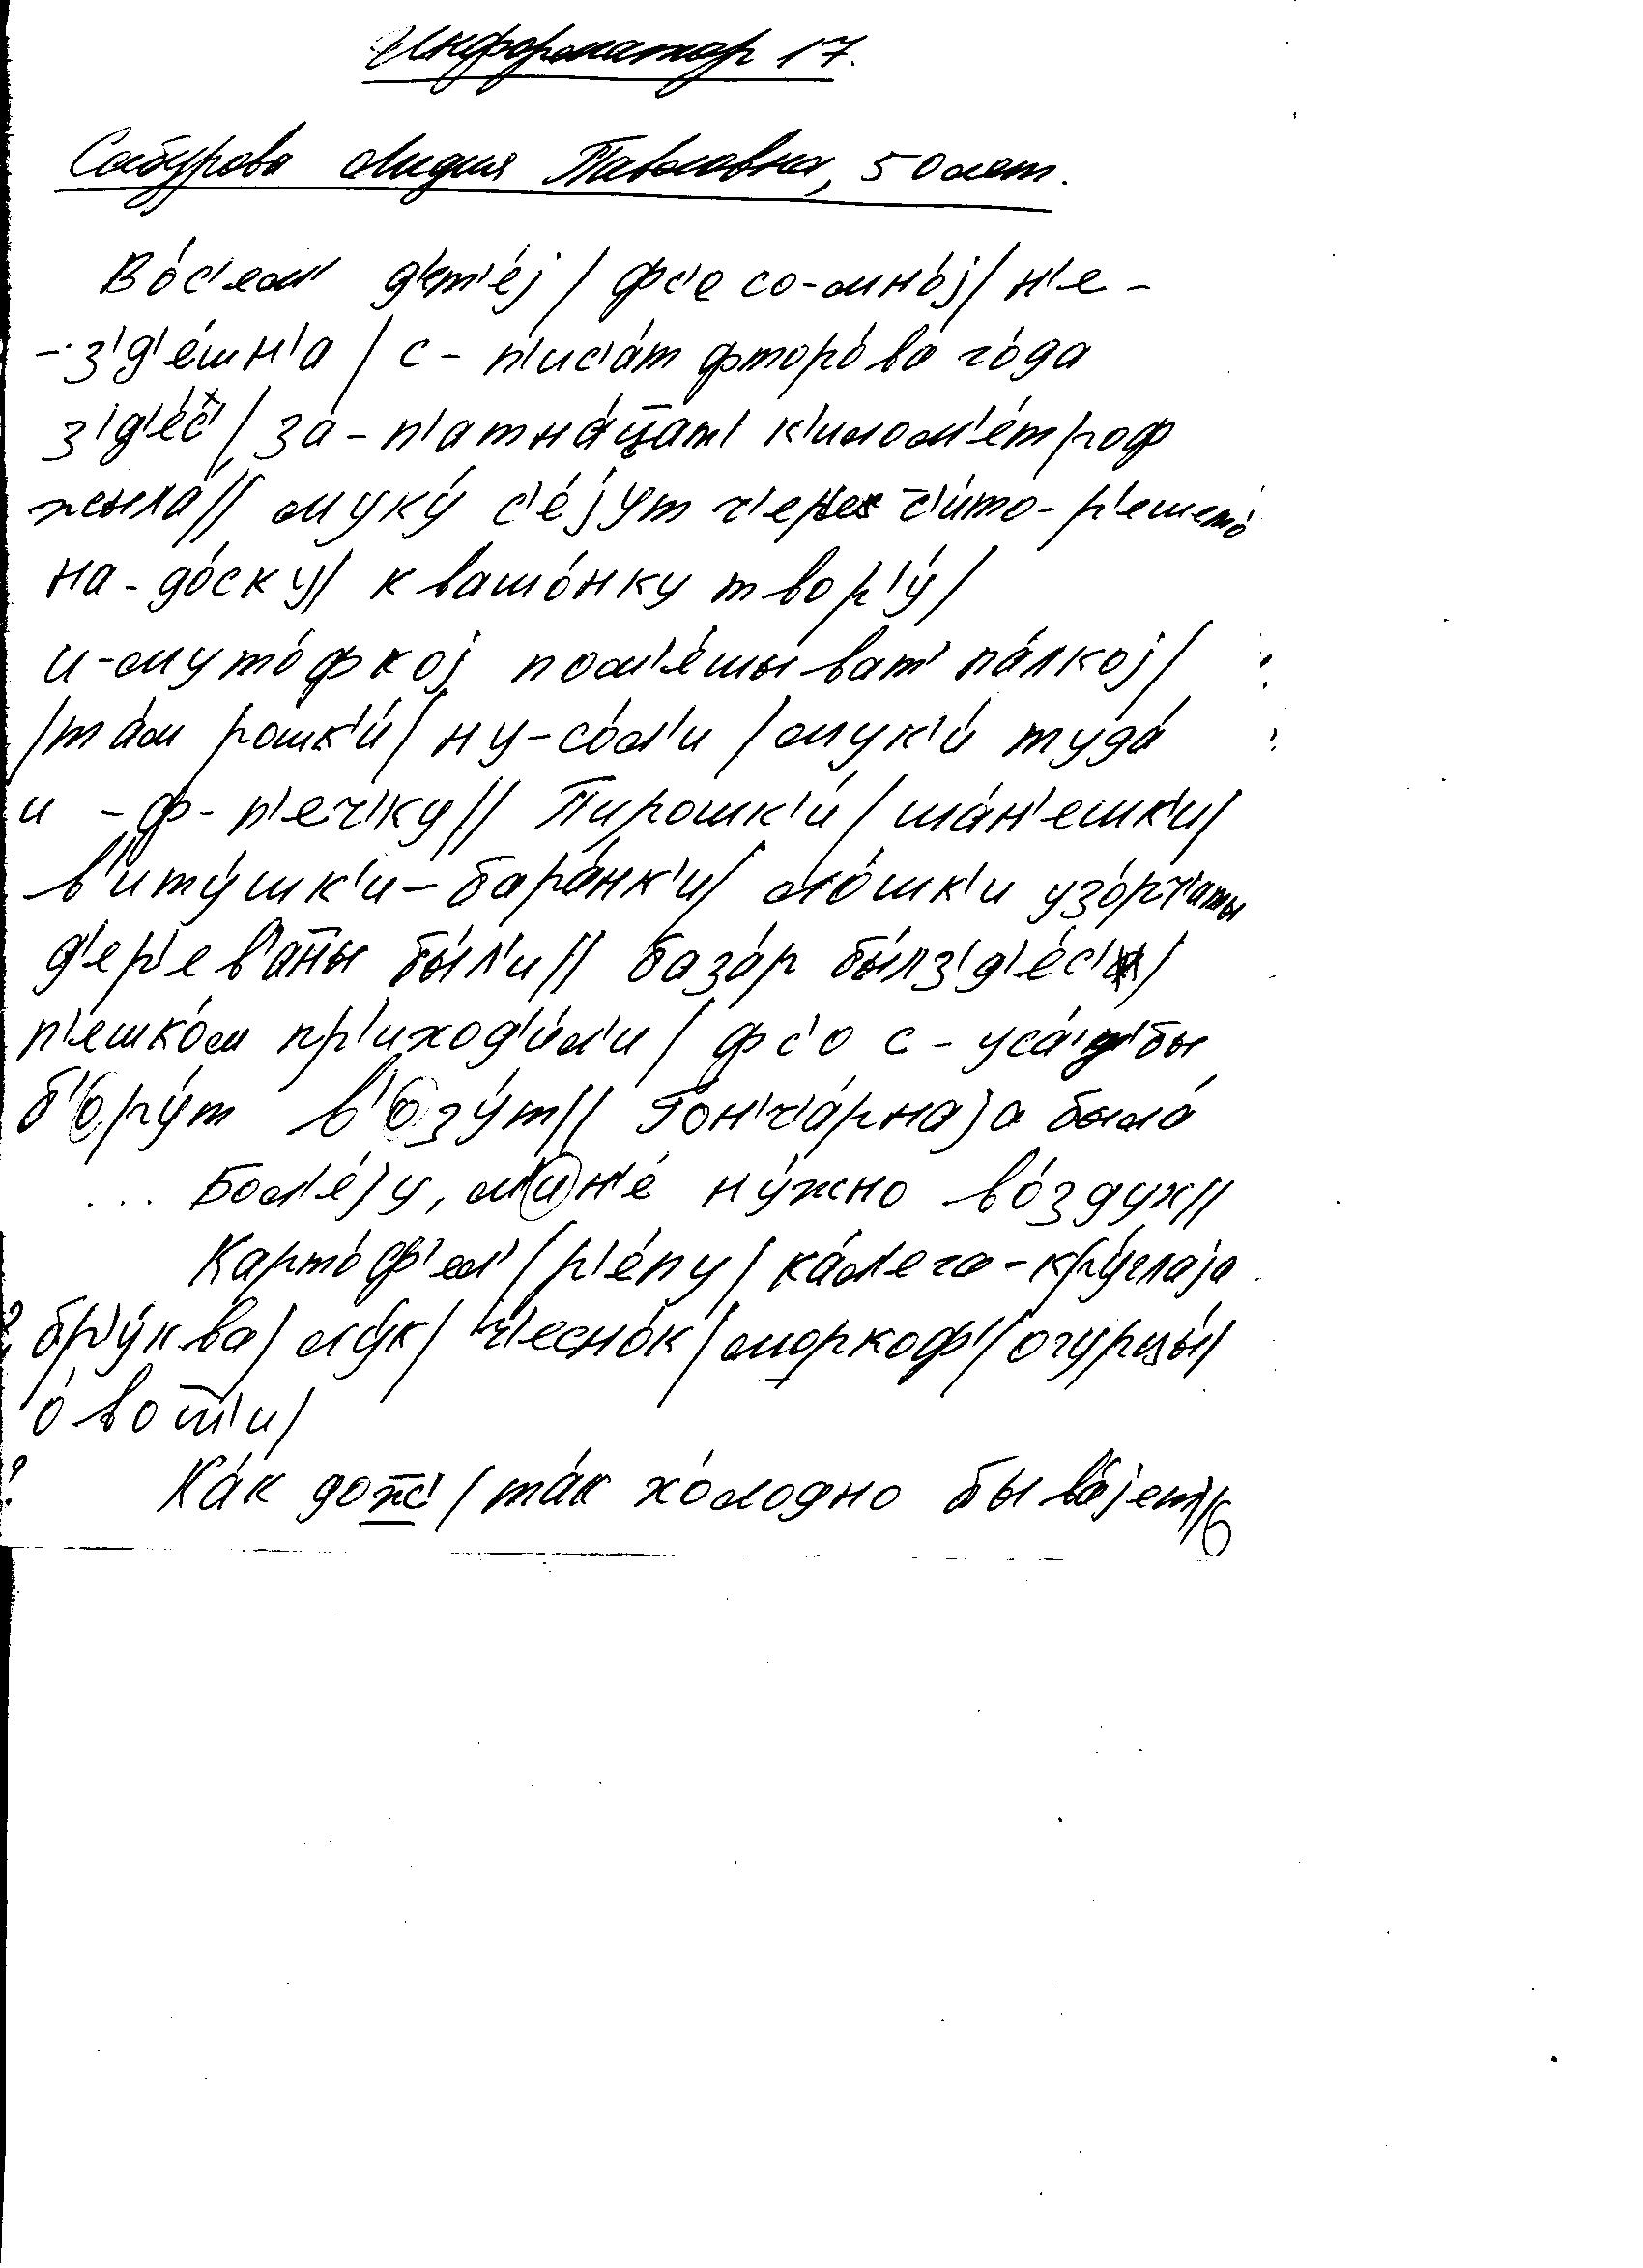 Информатор 17.
Сабурова Лидия Павловна, 50 лет.
Во́с'ем' д'ет'е́j / фс'е со-мно́j / н'е-
-з'д'е́шн'а / с-п'ис'а́т фторо́ва го́да
з'д'е́с' / за-п'атна́ц̅ат' к'илом'е́троф
жыла́ // муку́ с'е́jут ч'ер'ес с'и́то-р'ешето́
на-до́ску / квашо́нку твор'у́ /
и-муто́фкоj пом'е́шыват' па́лкоj /
/ та́м рошк'и́ / ну-со́л'и / мук'и́ туда́
и -ф- п'еч'ку // Пирошк'и́ / ша́н'ешк'и /
в'иту́шк'и-бара́нк'и / ло́шк'и узо́рч'аты
д'ер'ев'ан̅ы бы́л'и // база́р бы́л з'д'е́с' /
п'ешко́м пр'иход'и́л'и / фс'о с-уса́т'бы
б'ору́т в'озу́т // Гон'ч'а́рнаjа была́
... Бол'е́jу, м'ин'е́ ну́жно во́здух //
Карто́ф'ел' / р'е́пу / ка́л'ега-кру́глаjа
бр'у́ква / лу́к / ч'есно́к / моркоф' / огурцы́ /
о́вош̅'и /
Ка́к дож̅' / та́к хо́лодно быва́jет //